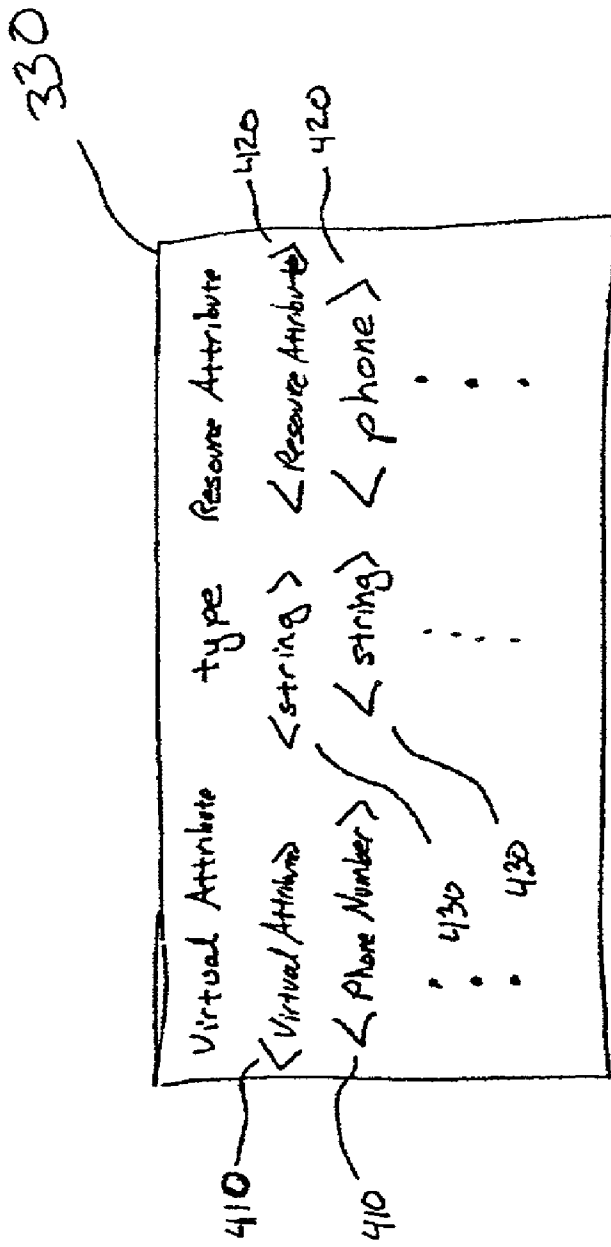 330
Virtual Attribute type Resource Attribute
410 <Virtual Attribute> <string> <Resource Attribute> 420
410 <Phone Number> <string> <phone> 420
430
430